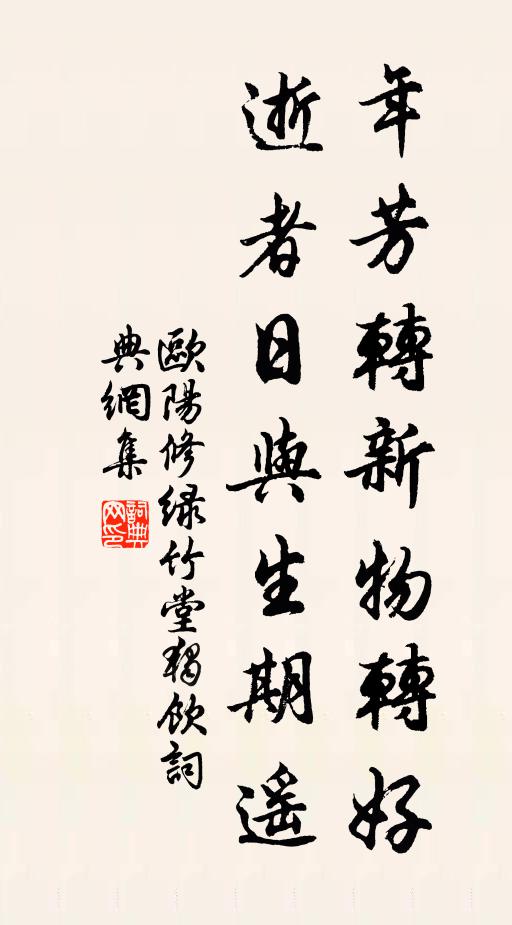 年芳轉新物轉好
逝者日與生期遥
歐陽修緑竹堂獨飲詞
典網集
詞典网印